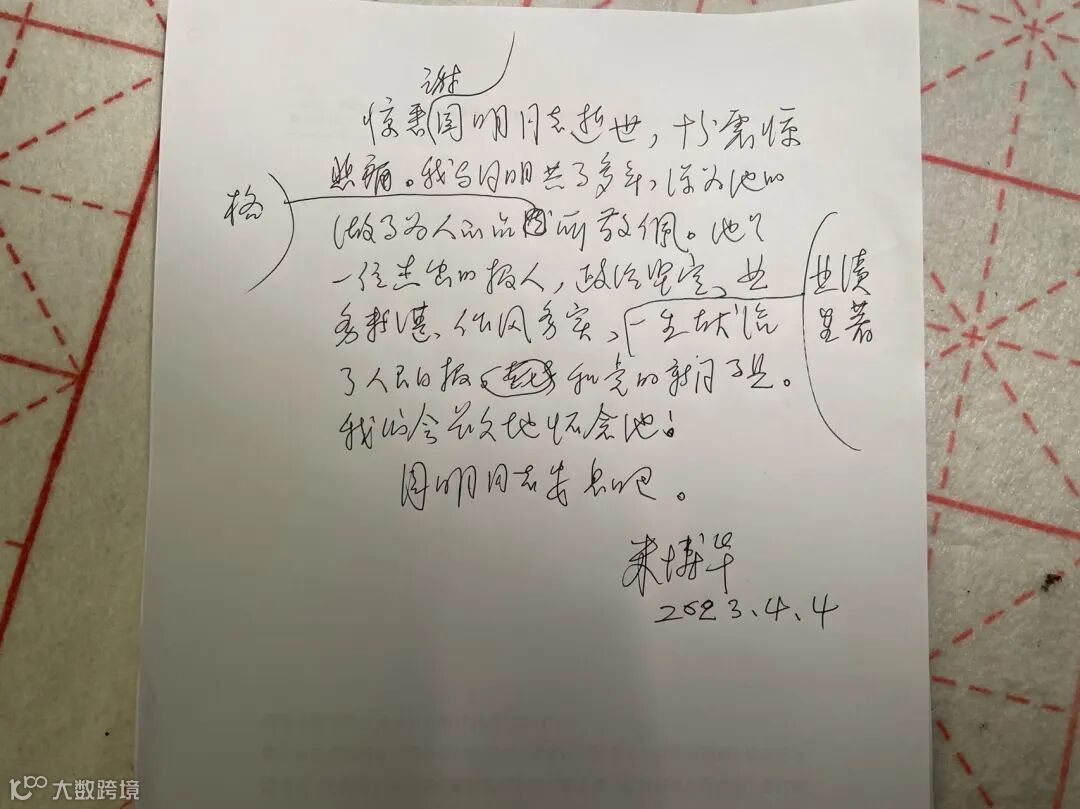 谢
惊悉国明同志逝世，十分震惊
悲痛。我与国明共事多年，深为他的
格
做事为人的品所敬佩。他是
一位杰出的报人，政治坚定、业
业绩
务精湛、作风务实，一生献给
显著
了人民日报和党的新闻事业。
我们会永久地怀念他！
国明同志安息吧。
米博华
2023.4.4
大数跨境